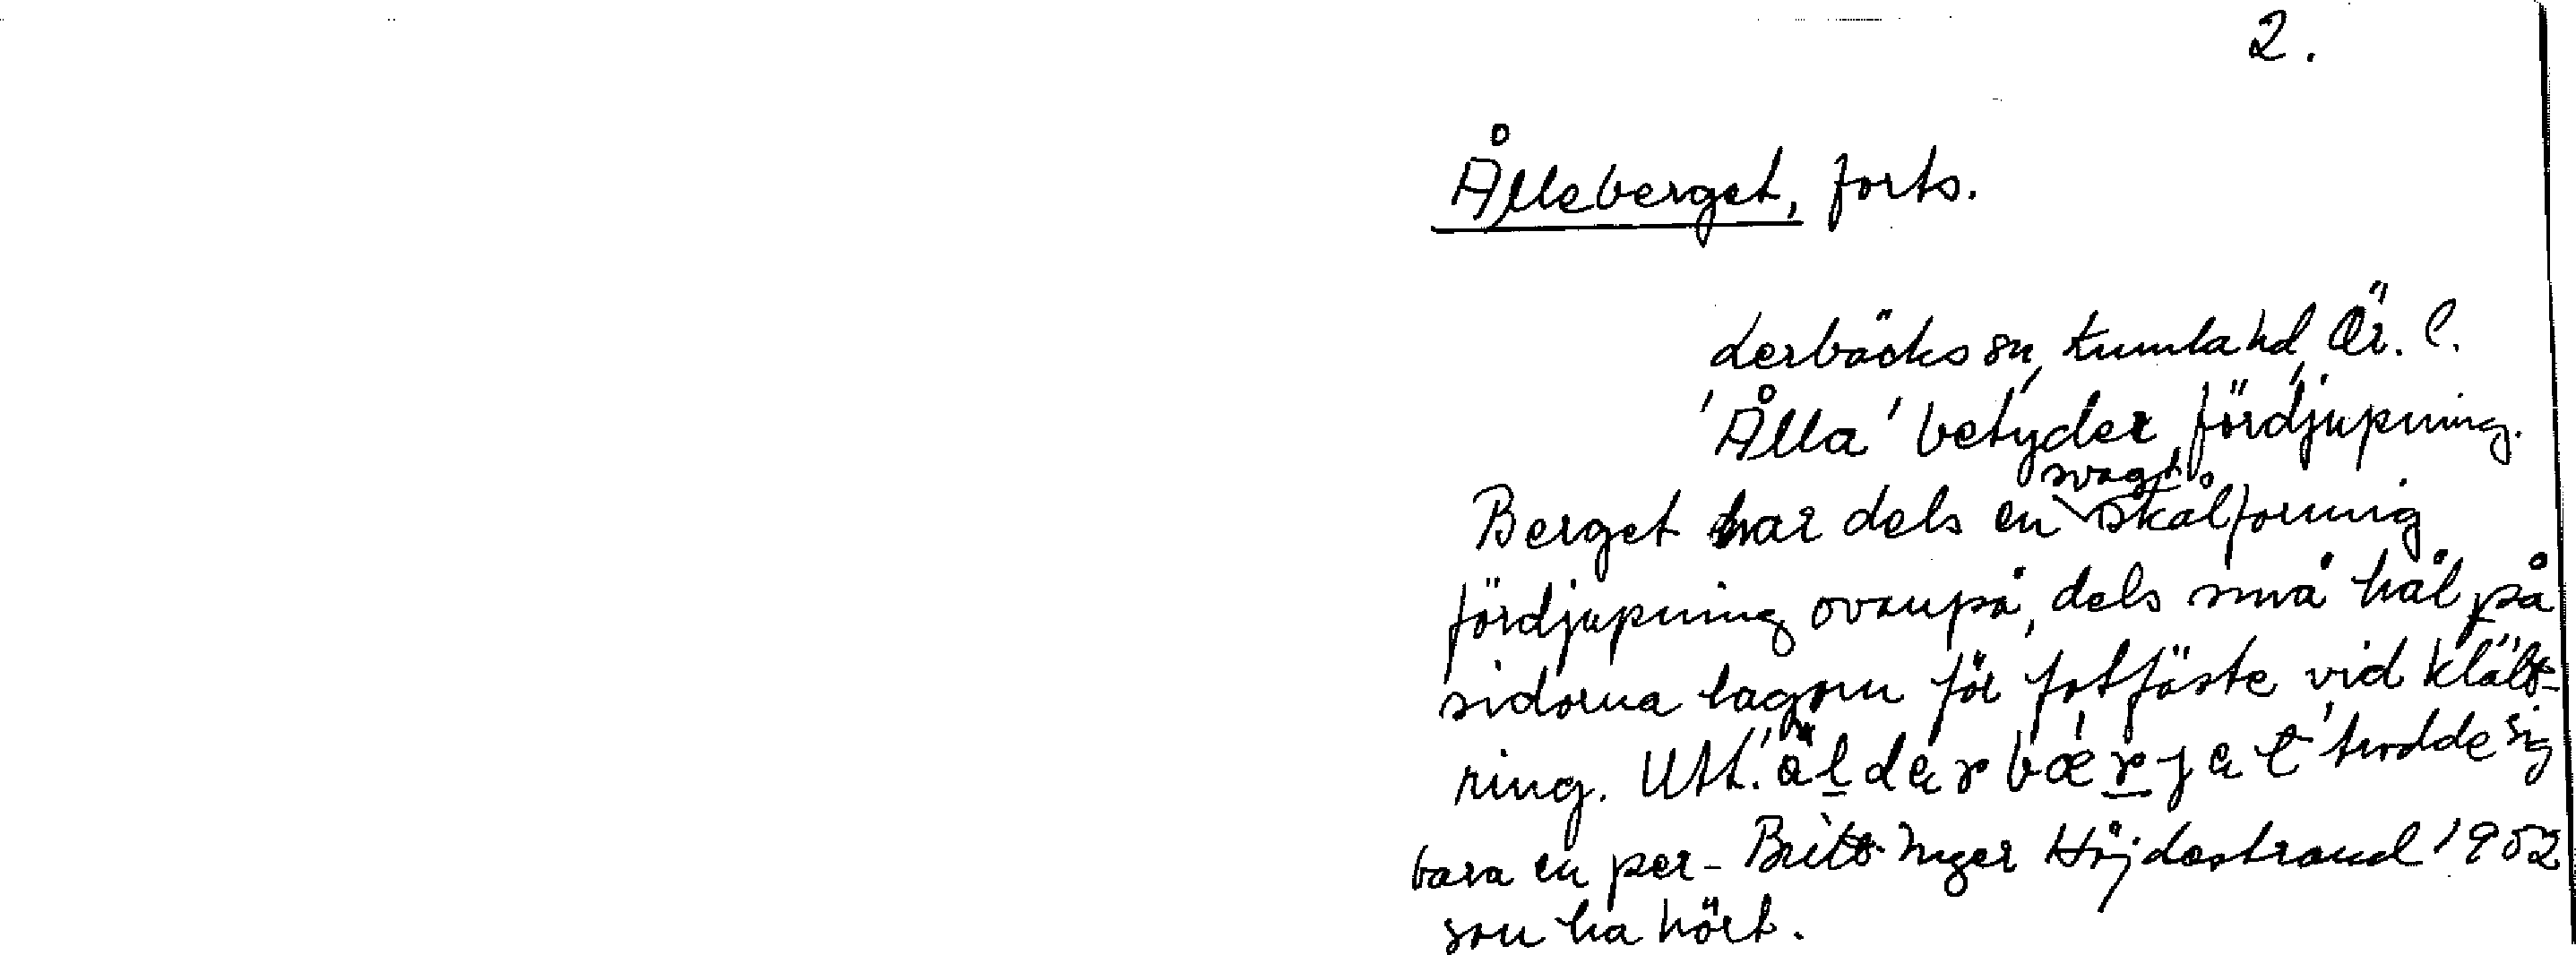 2.
Ålleberget, forts.
Lerbäcks sn, Kumla hd, Ör. l.
'Ålla' betyder fördjupning.
Berget har dels en svagt skålformig
fördjupning ovanpå, dels små hål på
sidorna lagom för fotfäste vid klätt-
ring. Utt. trodde sig
bara en per- Britt Inger Höjdestrand 1952
son ha hört.